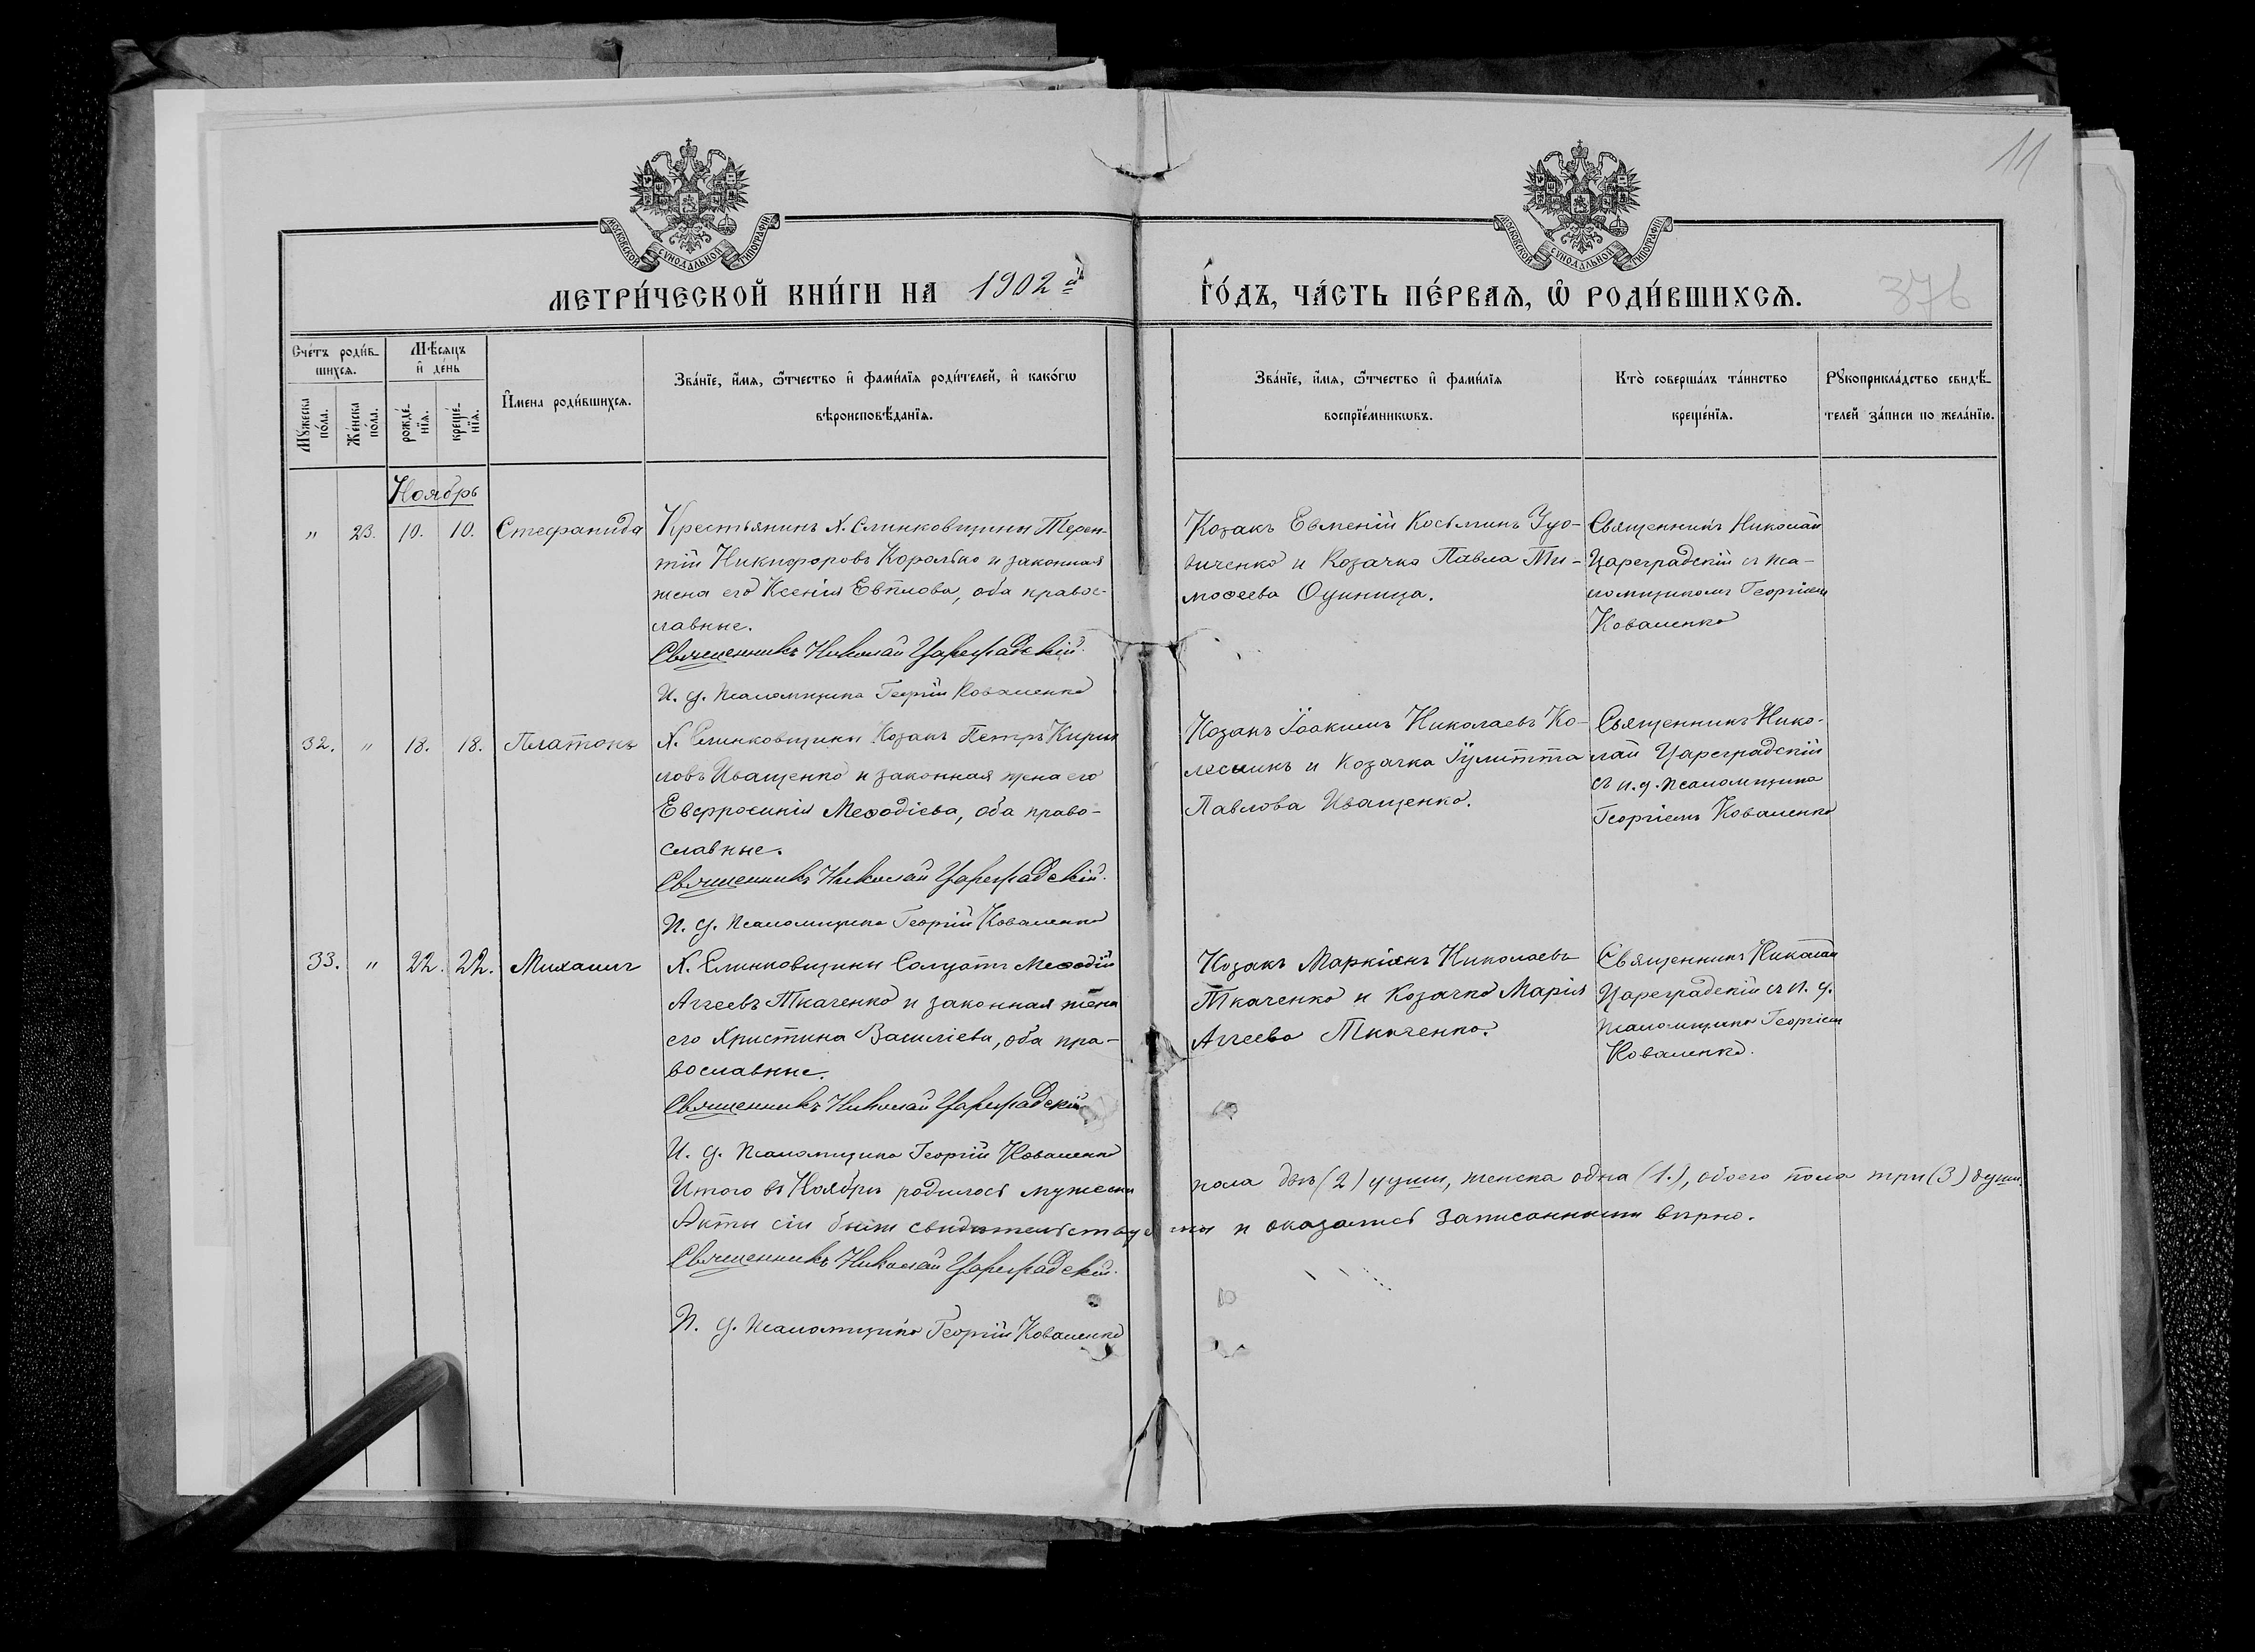 11
МОСКОВСКОЙ СѴНОДАЛЬНОЙ ТИПОГРАФІИ
МОСКОВСКОЙ СѴНОДАЛЬНОЙ ТИПОГРАФІИ
МЕТРИ́ЧЕСКОЙ КНИ́ГИ НА 1902 й
ГО́ДЪ, ЧА́СТЬ ПЕ́РВАѦ, Ѽ РОДИ́ВШИХСѦ.
376
Сче́тъ роди́в-
шихсѧ.
Мѣ́сяцъ
и҆ де́нь
Мꙋ́жеска
по́ла.
Же́нска
по́ла.
рожде́-
нїѧ.
креще́-
нїѧ.
И҆мена роди́вшихсѧ.
Зва́нїе, и҆́мѧ, ѻ҆́тчество и҆ фами́лїѧ роди́телей, и҆ како́гѡ
вѣроисповѣ́данїѧ.
Зва́нїе, и҆́мѧ, ѻ҆́тчество и҆ фами́лїѧ
воспрїе́мникѡвъ.
Кто̀ соверша́лъ та́инство
креще́нїѧ.
Рꙋкоприкла́дство свидѣ́-
телей за́писи по жела́нїю.
Ноябрь
" 23. 10. 10. Стефанида
Крестьянинъ Х. Слинковщины Терен-
тій Никифоровъ Королько и законная
жена его Ксенія Евплова, оба правос-
лавные.
Священникъ Николай Цареградскій.
И. д. псаломщика Георгій Коваленко
Козакъ Евменій Косьминъ Удо-
виченко и Козачка Павла Ти-
моѳеева Одиница.
Священникъ Николай
Цареградскій съ пса-
ломщикомъ Георгіемъ
Коваленко
32. " 18. 18. Платонъ
Х. Слинковщины Козакъ Петръ Кирил
ловъ Иващенко и законная жена его
Евфросинія Меѳодіева, оба право-
славные.
Священникъ Николай Цареградскій.
И. д. псаломщика Георгій Коваленко
Козакъ Іоакимъ Николаевъ Ко-
лесникъ и Козачка Іулитта
Павлова Иващенко.
Священникъ Нико-
лай Цареградскій
съ и. д. псаломщика
Георгіемъ Коваленко
33. " 22. 22. Михаилъ
Х. Слинковщины Солдатъ Меѳодій
Аггеевъ Ткаченко и законная жена
его Христина Василіева, оба пра-
вославные.
Священникъ Николай Цареградскій
И. д. псаломщика Георгій Коваленко
Козакъ Маркіянъ Николаевъ
Ткаченко и Козачка Марія
Аггеева Ткаченко.
Священникъ Николай
Цареградскій съ и. д.
псаломщика Георгіемъ
Коваленко.
Итого въ Ноябрѣ родилось мужеска пола двѣ (2) души, женска одна (1.), обоего пола три (3) души.
Акты сіи были свидѣтельствуемы и оказались записанными вѣрно.
Священникъ Николай Цареградскій.
И. д. псаломщика Георгій Коваленко